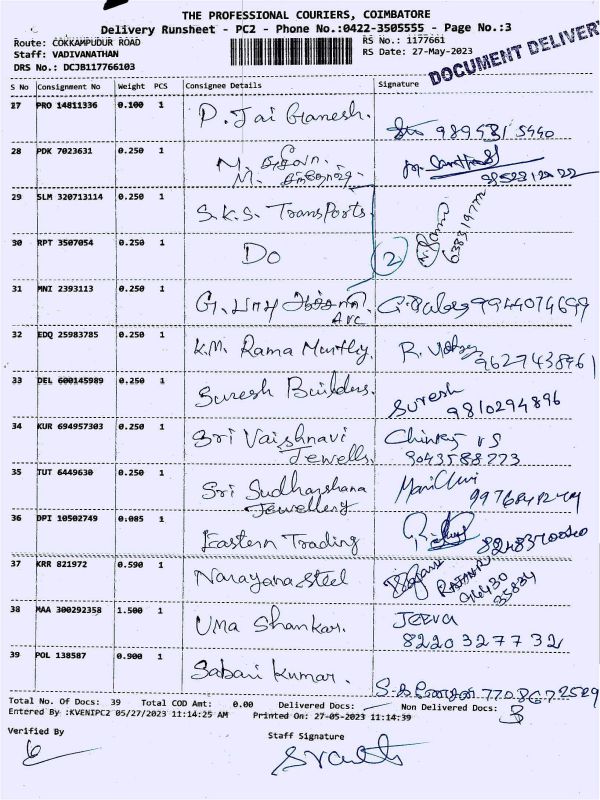 THE PROFESSIONAL COURIERS, COIMBATORE
Delivery Runsheet - PC2 - Phone No.:0422-3505555 - Page No.:3
Route: COKKAMPUDUR ROAD RS No.: 1177661
Staff: VADIVANATHAN RS Date: 27-May-2023
DRS No.: DCJB117766103
DOCUMENT DELIVERY
S No Consignment No Weight PCS Consignee Details Signature
27 PRO 14811336 0.100 1 P. Jai Ganesh.
28 PDK 7023631 0.250 1 M.
M.
29 SLM 320713114 0.250 1 S.K.S. Transports
30 RPT 3507054 0.250 1 Do 2
31 MNI 2393113 0.250 1 G. பாபு G. Babu 9944074699
32 EDQ 25983785 0.250 1 K.M. Rama Murthy. R. 9627438961
33 DEL 600145989 0.250 1 Suresh Builders. Suresh
9810294896
34 KUR 694957303 0.250 1 Sri Vaishnavi
Jewells. 9043588223
35 TUT 6449630 0.250 1 Sri Sudharshana
Jewellery
36 DPI 10502749 0.085 1 Eastern Trading
37 KRR 821972 0.590 1 Narayana Steel
38 MAA 300292358 1.500 1 Uma Shankar. Jeeva
8220327732
39 POL 138587 0.900 1 Sabari Kumar.
Total No. Of Docs: 39 Total COD Amt: 0.00 Delivered Docs: Non Delivered Docs:
Entered By :KVENIPC2 05/27/2023 11:14:25 AM Printed On: 27-05-2023 11:14:39
Verified By Staff Signature